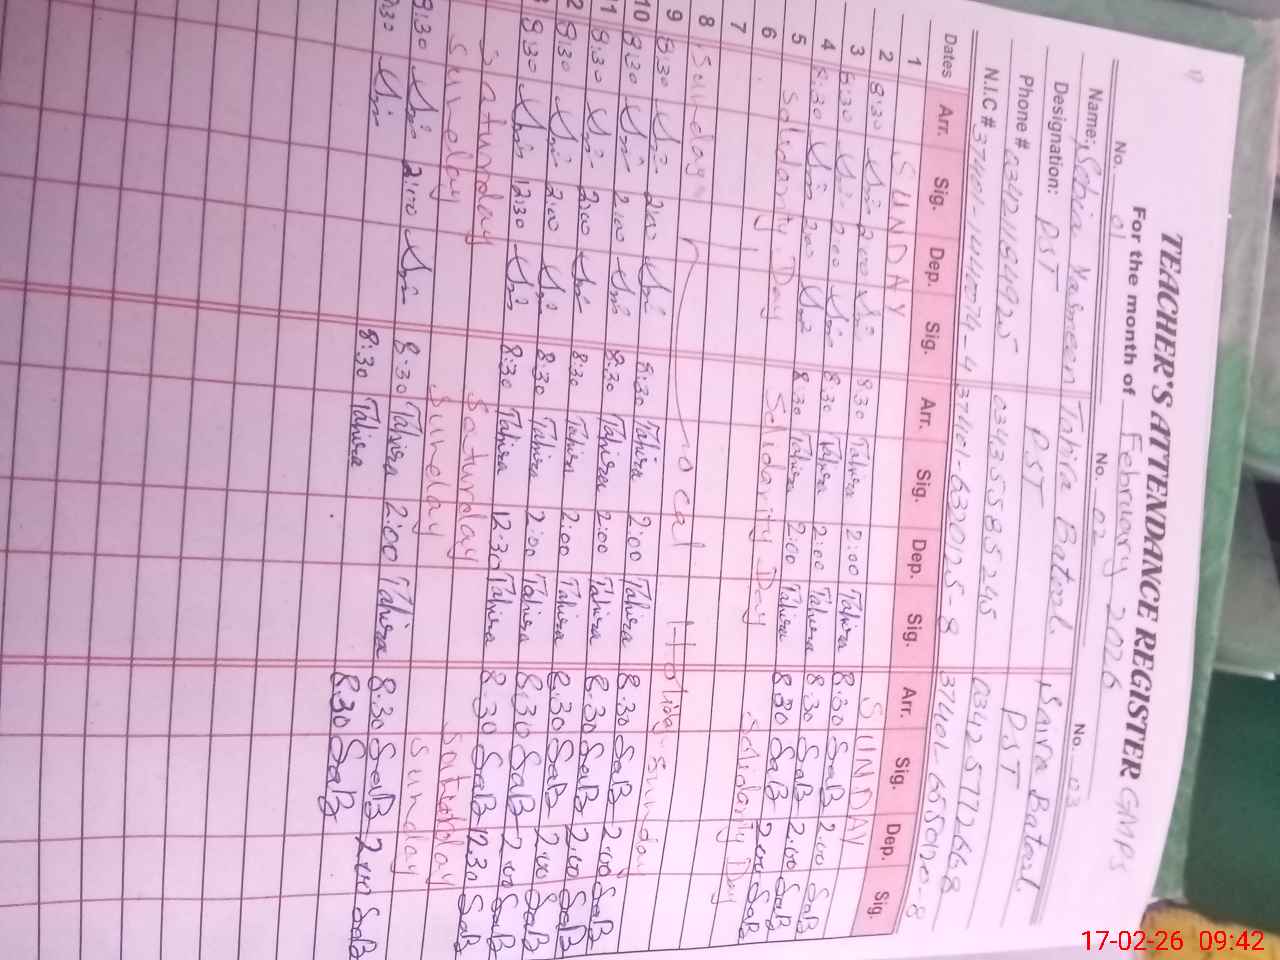 TEACHER'S ATTENDANCE REGISTER GMPS
For the month of February 2026
No. 01 No. 02 No. 03
Name: Sobia Yasmeen Tahira Batool. Saira Batool.
Designation: PST PST PST
Phone # 03421154925 03435585245 03425772668
N.I.C # 37401-1440074-4 37401-6320125-8 37401-6550120-8
Dates Arr. Sig. Dep. Sig. Arr. Sig. Dep. Sig. Arr. Sig. Dep. Sig.
1 SUNDAY SUNDAY
2 8:30 2:00 8:30 Tahira 2:00 Tahira 8:30 SaB 2:00 SaB
3 8:30 2:00 8:30 Tahira 2:00 Tahira 8:30 SaB 2:00 SaB
4 8:30 2:00 8:30 Tahira 2:00 Tahira 8:30 SaB 2:00 SaB
5 Solidarity Day Solidarity Day Solidarity Day
6
7 Local Holiday
8 Sunday Sunday
9 8:30 2:00 8:30 Tahira 2:00 Tahira 8:30 SaB 2:00 SaB
10 8:30 2:00 8:30 Tahira 2:00 Tahira 8:30 SaB 2:00 SaB
11 8:30 2:00 8:30 Tahira 2:00 Tahira 8:30 SaB 2:00 SaB
8:30 2:00 8:30 Tahira 2:00 Tahira 8:30 SaB 2:00 SaB
8:30 12:30 8:30 Tahira 12:30 Tahira 8:30 SaB 12:30 SaB
Saturday Saturday Saturday
Sunday Sunday Sunday
8:30 2:00 8:30 Tahira 2:00 Tahira 8:30 SaB 2:00 SaB
8:30 8:30 Tahira 8:30 SaB
17-02-26 09:42